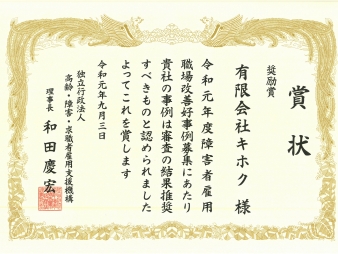 賞状
奨励賞
有限会社キホク 様
令和元年度障害者雇用
職場改善好事例募集にあたり
貴社の事例は審査の結果推奨
すべきものと認められました
よってこれを賞します
令和元年九月三日
独立行政法人
高齢・障害・求職者雇用支援機構
理事長 和田慶宏